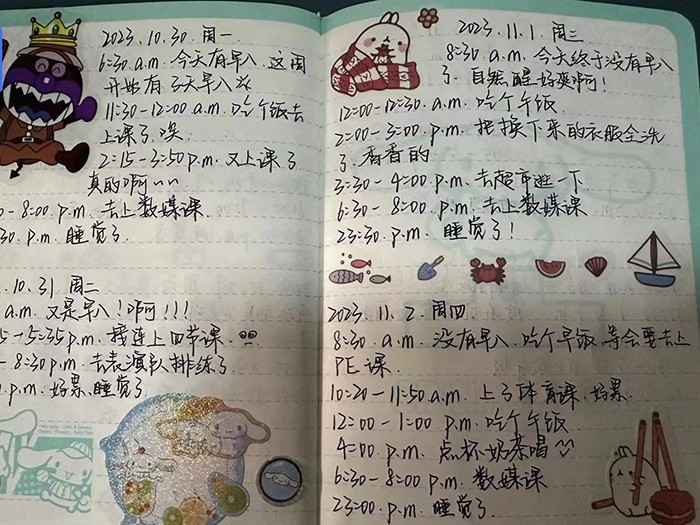 2023.10.30 周一.
6:30 a.m. 今天有早八.这周
开始有3天早八
11:30-12:00 a.m. 吃个饭去
上课了.唉
2:15-3:50 p.m. 又上课了
真的啊~~
0-8:00 p.m. 去上数媒课.
30 p.m. 睡觉了.
10.31 周二
a.m. 又是早八!啊!!!
5-5:35 p.m. 接连上四节课.
-8:30 p.m. 去表演队排练了
p.m. 好累.睡觉了
2023.11.1 周三
8:30 a.m. 今天终于没有早八
了.自然醒好爽啊!
12:00-12:30 a.m. 吃个午饭
2:00-3:00 p.m. 把换下来的衣服全洗
了.香香的
3:30-4:00 p.m. 去超市逛一下.
6:30-8:00 p.m. 去上数媒课
23:30 p.m. 睡觉了!
2023.11.2 周四
8:30 a.m. 没有早八.吃个早饭.等会要去上
PE课.
10:20-11:50 a.m. 上了体育课.好累.
12:00-1:00 p.m. 吃个午饭
4:00 p.m. 点杯奶茶喝
6:30-8:00 p.m. 数媒课
23:00 p.m. 睡觉了.